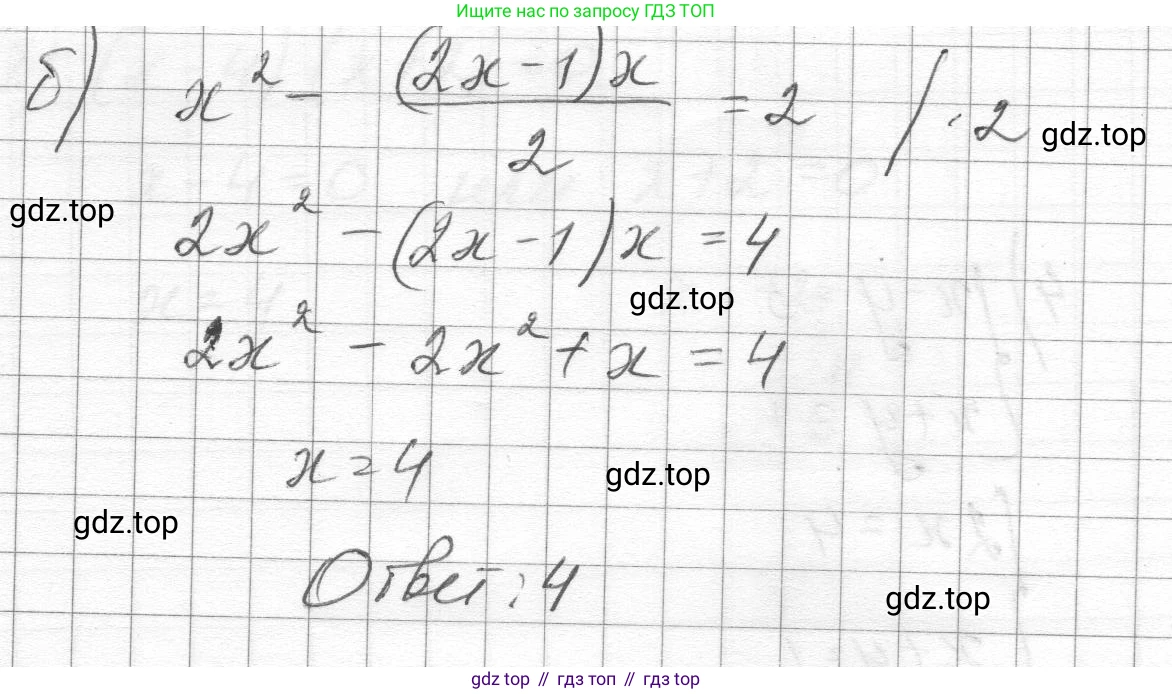 Ищите нас по запросу ГДЗ ТОП
б) x² - (2x-1)x/2 = 2 / · 2
gdz.top
gdz.top
2x² - (2x-1)x = 4
gdz.top
2x² - 2x² + x = 4
x = 4
gdz.top
gdz.top
Ответ: 4
gdz.top
gdz top // гдз топ // гдз top